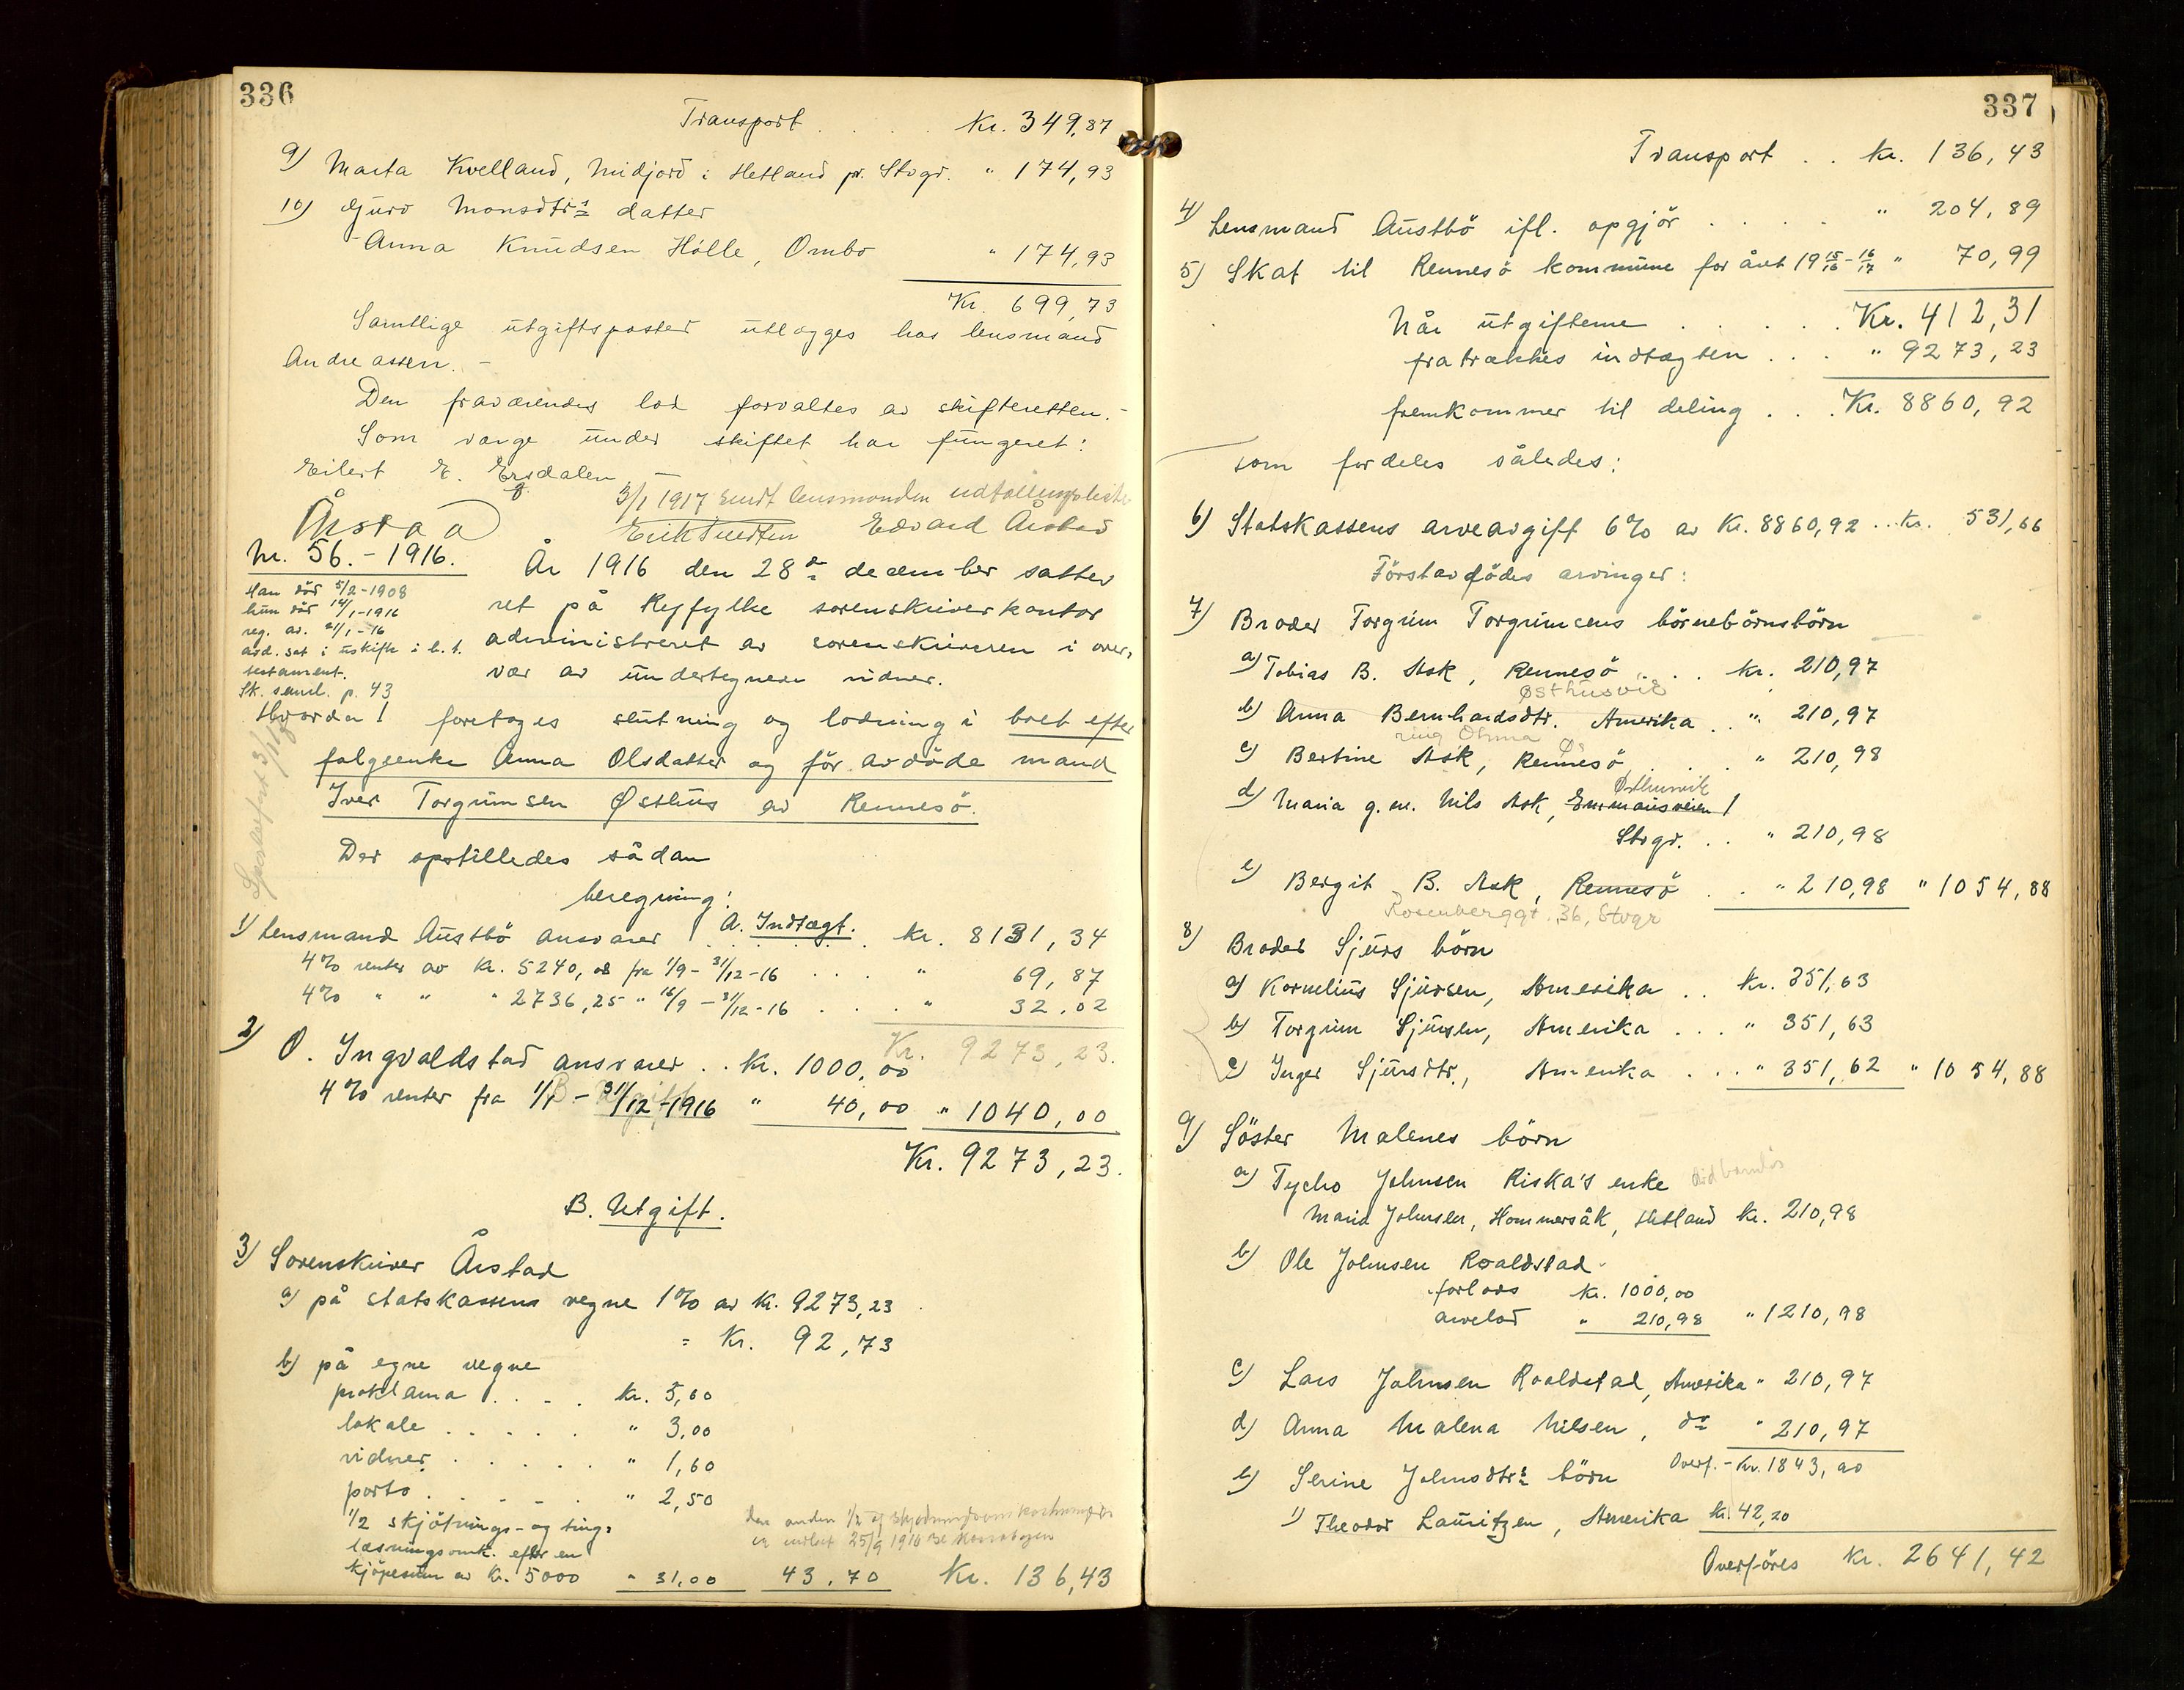 336
Transport . . . . Kr. 349,87
9) Marta Kvelland, Midjord i Hetland pr. Stvgr. " 174,93
10) Guro Monsdtrs datter
Anna Knudsen Hölle, Ombo " 174,93
Kr. 699,73
Samtlige utgiftsposter utlægges hos lensmand
Andreassen. -
Den fraværendes lod forvaltes av skifteretten. -
Som værge under skiftet har fungeret:
Eilert E. Ersdalen -
3/1 1917 sendt lensmanden
Edvard Årstad
Årstad
Nr. 56. - 1916.
Han död 5/2 - 1908
hun död 14/1 - 1916
reg. av. 21/1 - 16
avd. sat i uskifte i h. t.
testament.
Sk. saml. p. 43
År 1916 den 28de december sattes
ret på Ryfylke sorenskriverkontor
administreret av sorenskriveren i over-
vær av undertegnede vidner.
Hvorda! foretoges slutning og lodning i boet efter
følgeenke Anna Olsdatter og för avdöde mand
Iver Torgrimsen Østhus av Rennesö.
Der opstilledes sådan
beregning:
A. Indtægt.
1) Lensmand Austbö ansvarer . . . . . . Kr. 8131,34
4% renter av Kr. 5240,08 fra 1/9 - 31/12 - 16 . . . . " 69,87
4% " " " 2736,25 " 16/9 - 31/12 - 16 . . . " 32,02
Kr. 9273,23.
2) O. Ingvaldstad ansvarer . . Kr. 1000,00
4% renter fra 1/1 - 31/12 - 1916 " 40,00 " 1040,00
Kr. 9273,23.
B. Utgift.
3) Sorenskriver Årstad
a) på statskassens vegne 1% av Kr. 9273,23
= Kr. 92,73
b) på egne vegne
proklama . . . . Kr. 5,60
lokale . . . . . " 3,00
vidner . . . . . " 1,60
porto . . . . . " 2,50
1/2 skjötnings- og ting-
læsningsomk. efter en
kjöpesum av Kr. 5000 " 31,00 43,70 Kr. 136,43
den anden 1/2 af
er indbet 25/9 1916
337
Transport . . Kr. 136,43
4) Lensmand Austbö ifl. opgjör . . . . . " 204,89
5) Skat til Rennesö kommune for året 19 15/16 - 16/17 " 70,99
Når utgifterne . . . . . . Kr. 412,31
fratrækkes indtægten . . . " 9273,23
fremkommer til deling . . . Kr. 8860,92
som fordeles således:
6) Statskassens arveavgift 6% av Kr. 8860,92 . . Kr. 531,66
Förstavdödes arvinger:
7) Broder Torgrim Torgrimsens börnebörnsbörn
a) Tobias B. Ask, Rennesö . . . Kr. 210,97
Østhusvik
b) Anna Bernhardsdtr. Amerika . . " 210,97
c) Bertine Ask, Rennesö . . . " 210,98
Østhusvik
d) Maria g. m. Nils Ask, Emmausveien!
Stvgr. . . " 210,98
e) Bergit B. Ask, Rennesö . . " 210,98 " 1054,88
Rosenberggt. 36, Stvgr
8) Broder Sjurs börn
a) Kornelius Sjursen, Amerika . . Kr. 351,63
b) Torgrim Sjursen, Amerika . . . " 351,63
c) Inger Sjursdtr., Amerika . . . " 351,62 " 1054,88
9) Söster Malenes börn
a) Tycho Johnsen Riska's enke
Maria Johnsen, Hommersåk, Hetland Kr. 210,98
b) Ole Johnsen Roaldstad
forlods Kr. 1000,00
arvelod " 210,98 " 1210,98
c) Lars Johnsen Roaldstad, Amerika " 210,97
d) Anna Malena Nilsen, do " 210,97
Overf. - Kr. 1843,90
e) Serine Johnsdtrs börn
1) Theodor Lauritzen, Amerika Kr. 42,20
Overföres Kr. 2641,42